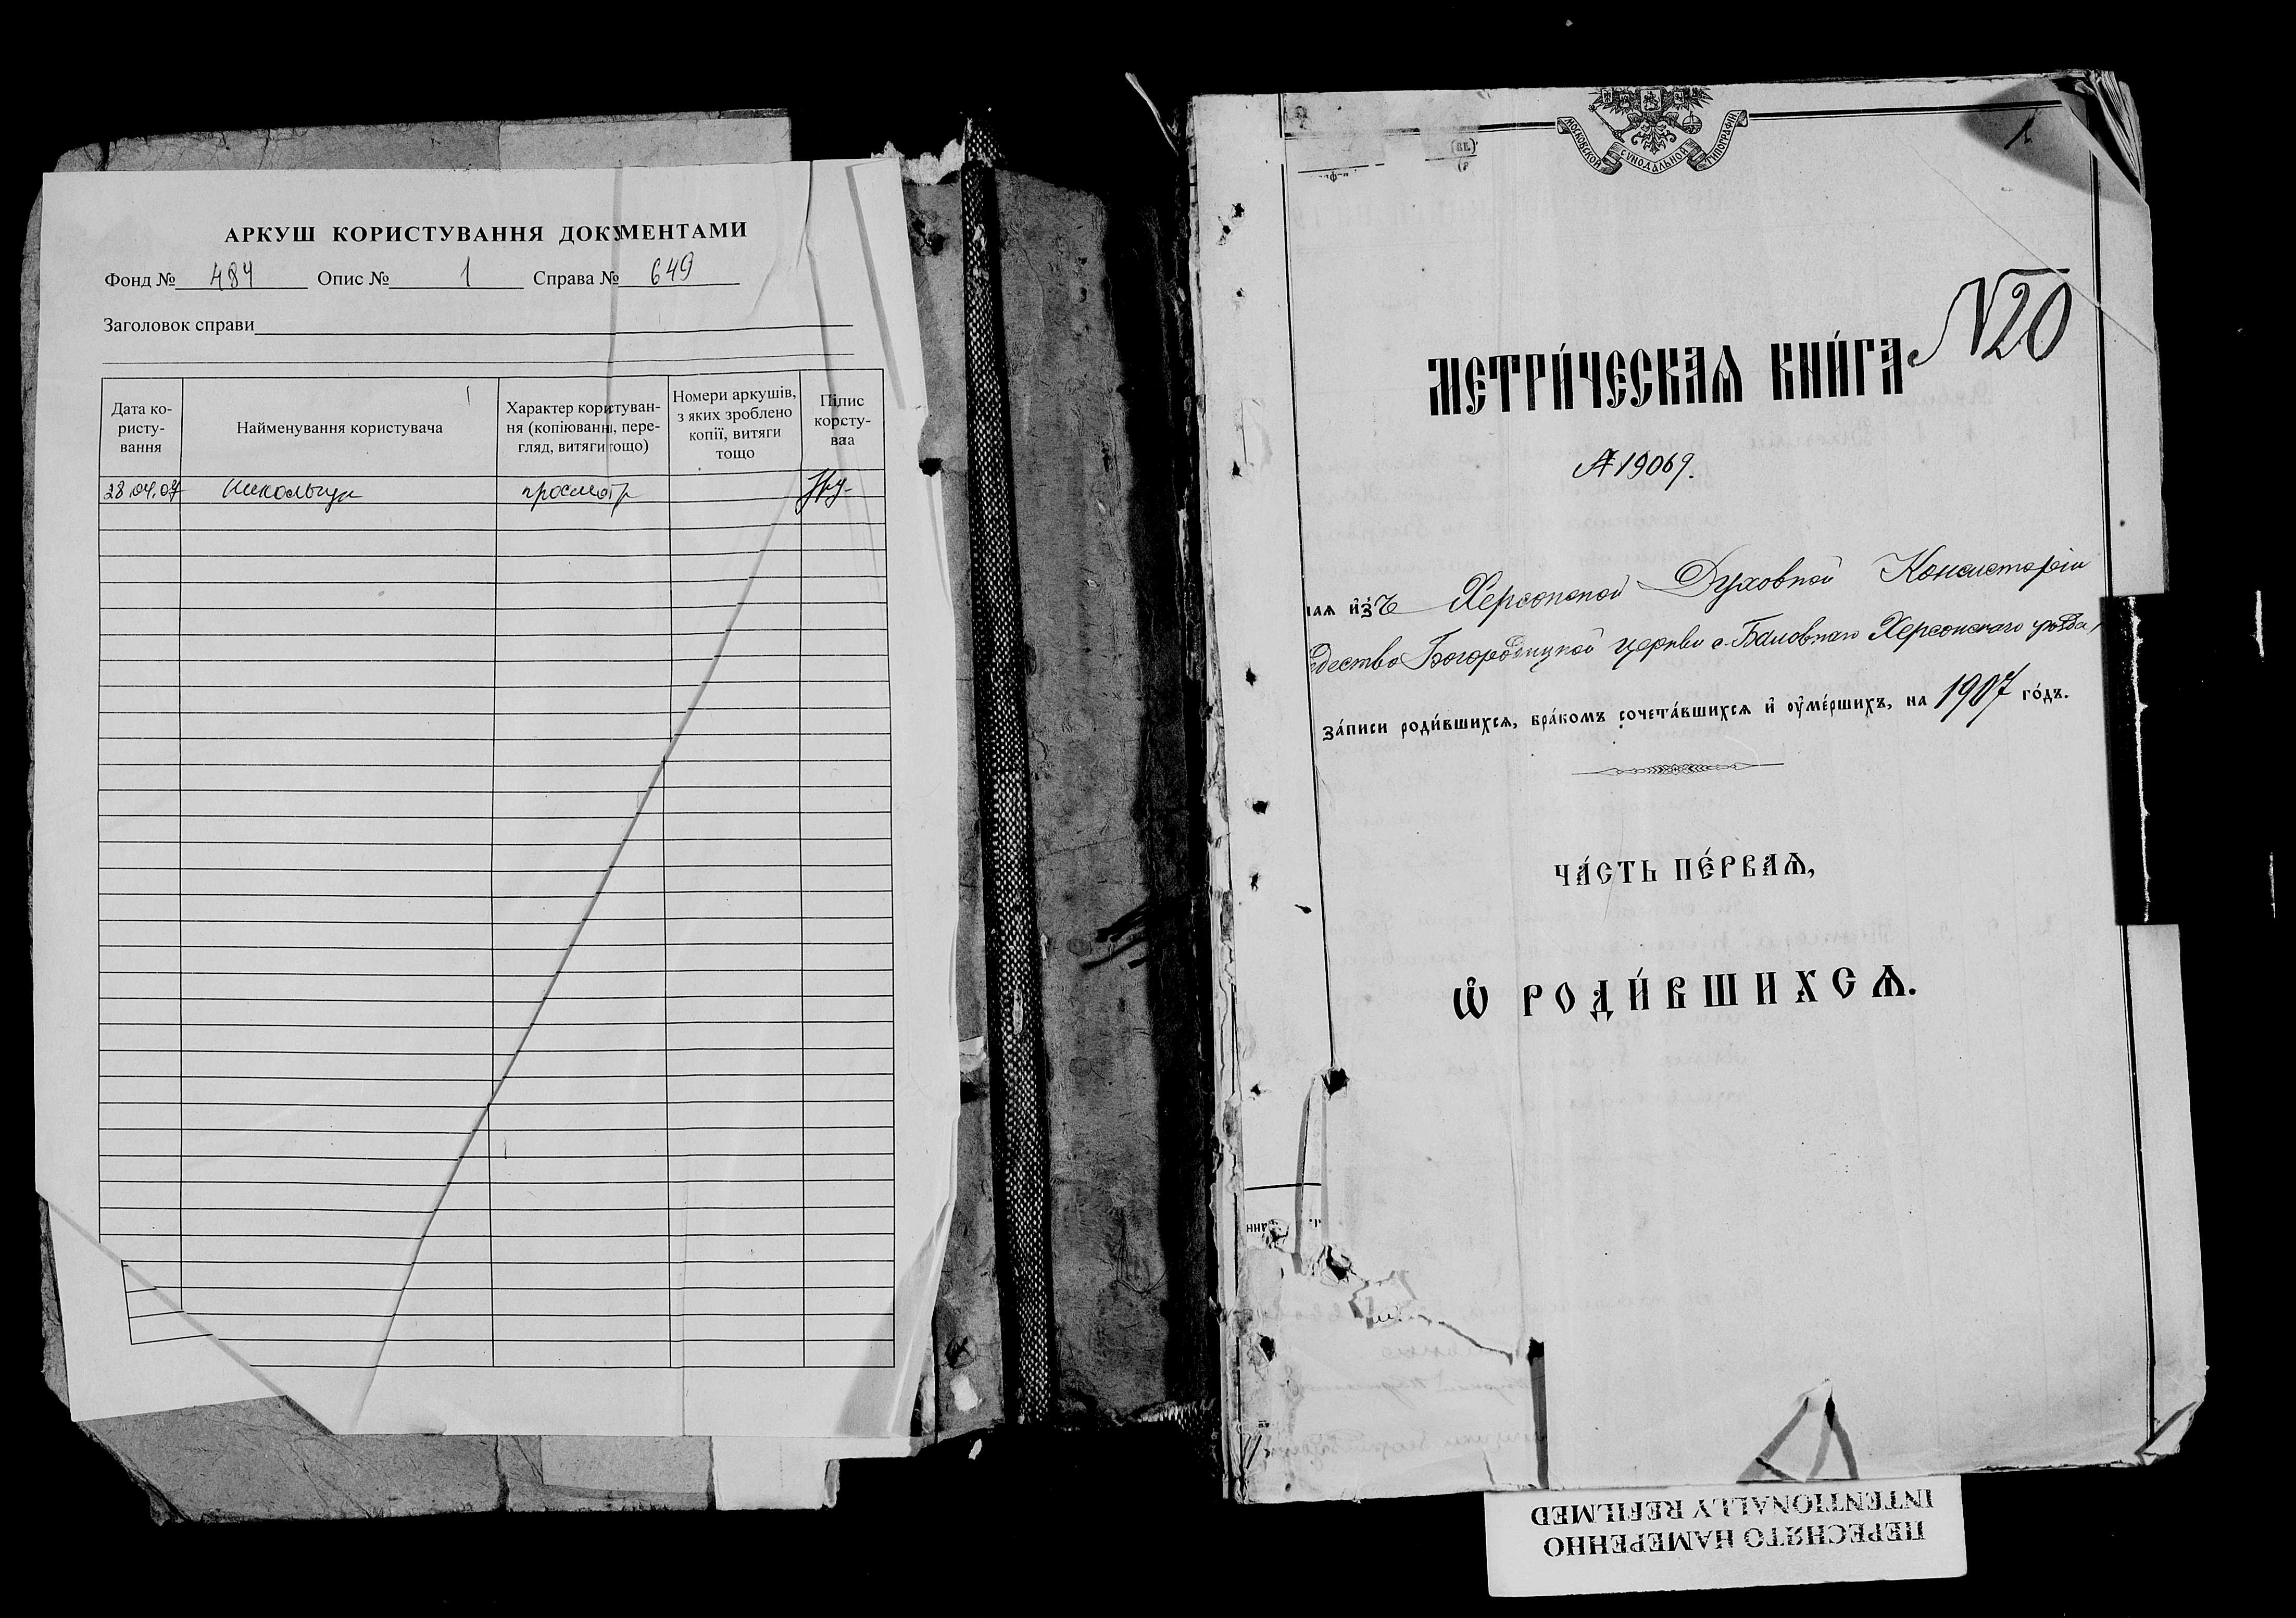 АРКУШ КОРИСТУВАННЯ ДОКУМЕНТАМИ
Фонд № 484 Опис № 1 Справа № 649
Заголовок справи
Дата ко-
ристу-
вання
Найменування користувача
Характер користуван-
ня (копіюванні, пере-
гляд, витяги тощо)
Номери аркушів,
з яких зроблено
копії, витяги
тощо
Пілис
корсту-
ваа
28.04.07 просмотр
МОСКОВСКОЙ СѴНОДАЛЬНОЙ ТИПОГРАФІИ
1
N20
МЕТРИ́ЧЕСКАѦ КНИ́ГА
№ 19069.
наѧ и҆зъ Херсонской Духовной Консисторіи
дество Богородицкой церкви с. Баловнаго Херсонскаго уѣзда,
за́писи роди́вшихсѧ, бра́комъ сочета́вшихсѧ и҆ ᲂу҆ме́ршихъ, на 1907 го́дъ.
ЧА́СТЬ ПЕ́РВАѦ,
Ѡ҆ РОДИ́ВШИХСѦ.
ПЕРЕСНЯТО НАМЕРЕННО
INTENTIONALLY REFILMED